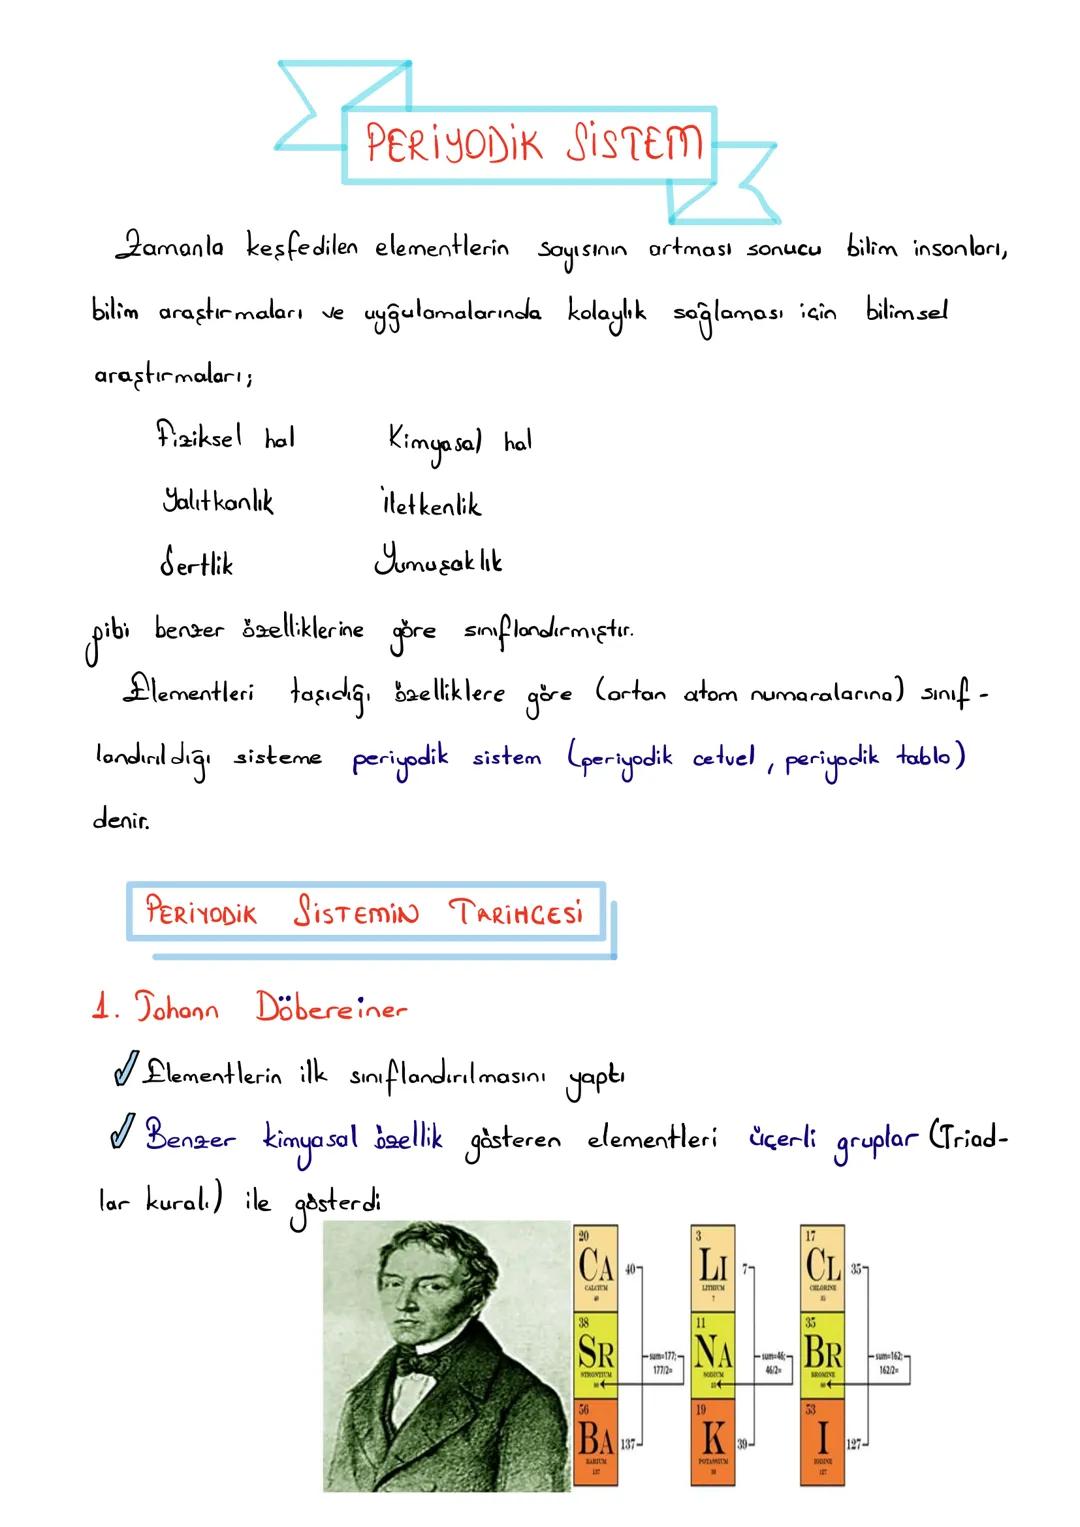 PERİYODİK SİSTEM
Zamanla keşfedilen elementlerin sayısının artması sonucu bilim insanları,
bilim araştırmaları ve uyğulamalarında kolaylık sağlaması için bilimsel
araştırmaları;
Fiziksel hal Kimyasal hal
Yalıtkanlık İletkenlik
Sertlik Yumuşaklık
gibi benzer özelliklerine göre sınıflandırmıştır.
Elementleri taşıdığı özelliklere göre (artan atom numaralarına) sınıf-
landırıldığı sisteme periyodik sistem (periyodik cetvel, periyodik tablo)
denir.
PERİYODİK SİSTEMİN TARİHCESİ
1. Johann Döbereiner
Elementlerin ilk sınıflandırılmasını yaptı
Benzer kimyasal özellik gösteren elementleri üçerli gruplar (Triad-
lar kuralı) ile gösterdi
20 3 17
CA 40 LI 7 CL 35
CALCIUM LITHIUM CHLORINE
40 7 35
38 11 35
SR sum=177; NA sum=46; BR sum=162;
177/2= 46/2= 162/2=
STRONTIUM SODIUM BROMINE
56 19 53
BA 137 K 39 I 127
BARIUM POTASSIUM IODINE
137 39 127